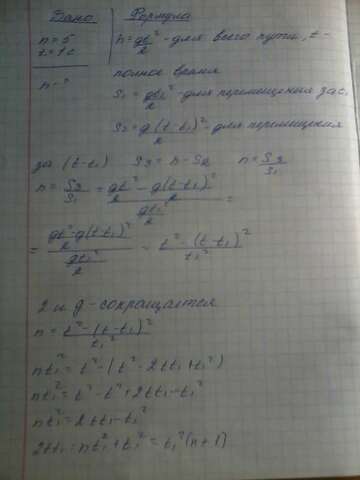 Дано Формула
n = 5 h = gt²/2 - для всего пути, t -
t = 1 с
полное время
h - ? S₁ = gt₁²/2 - для перемещения за с,
S₂ = g(t-t₁)²/2 - для перемещения
за (t-t₁) S₃ = h - S₂ n = S₃/S₁
n = S₃/S₁ = (gt²/2 - g(t-t₁)²/2)/(gt₁²/2) =
= ((gt² - g(t-t₁)²)/2)/(gt₁²/2) = (t² - (t-t₁)²)/t₁²
2 и g - сокращается
n = (t² - (t-t₁)²)/t₁²
nt₁² = t² - (t² - 2tt₁ + t₁²)
nt₁² = t² - t² + 2tt₁ - t₁²
nt₁² = 2tt₁ - t₁²
2tt₁ = nt₁² + t₁² = t₁²(n+1)